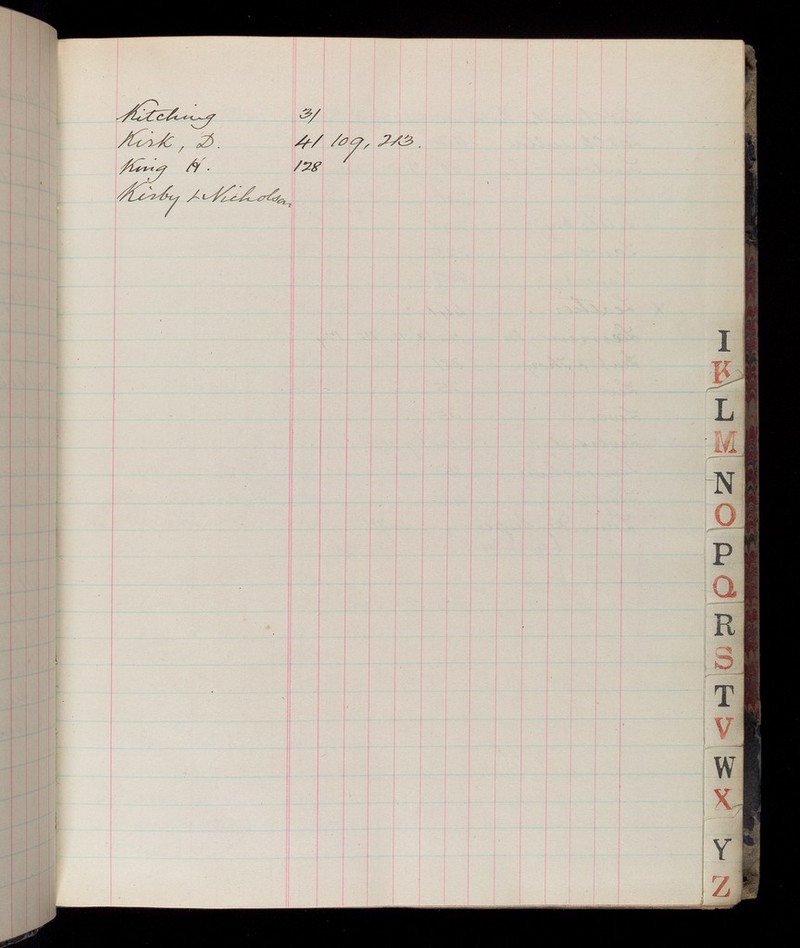 Kitching 31
Kirk, D. 41 109, 213.
King H. 128
Kirby & Nicholson
I
K
L
M
N
O
P
Q
R
S
T
V
W
X
Y
Z